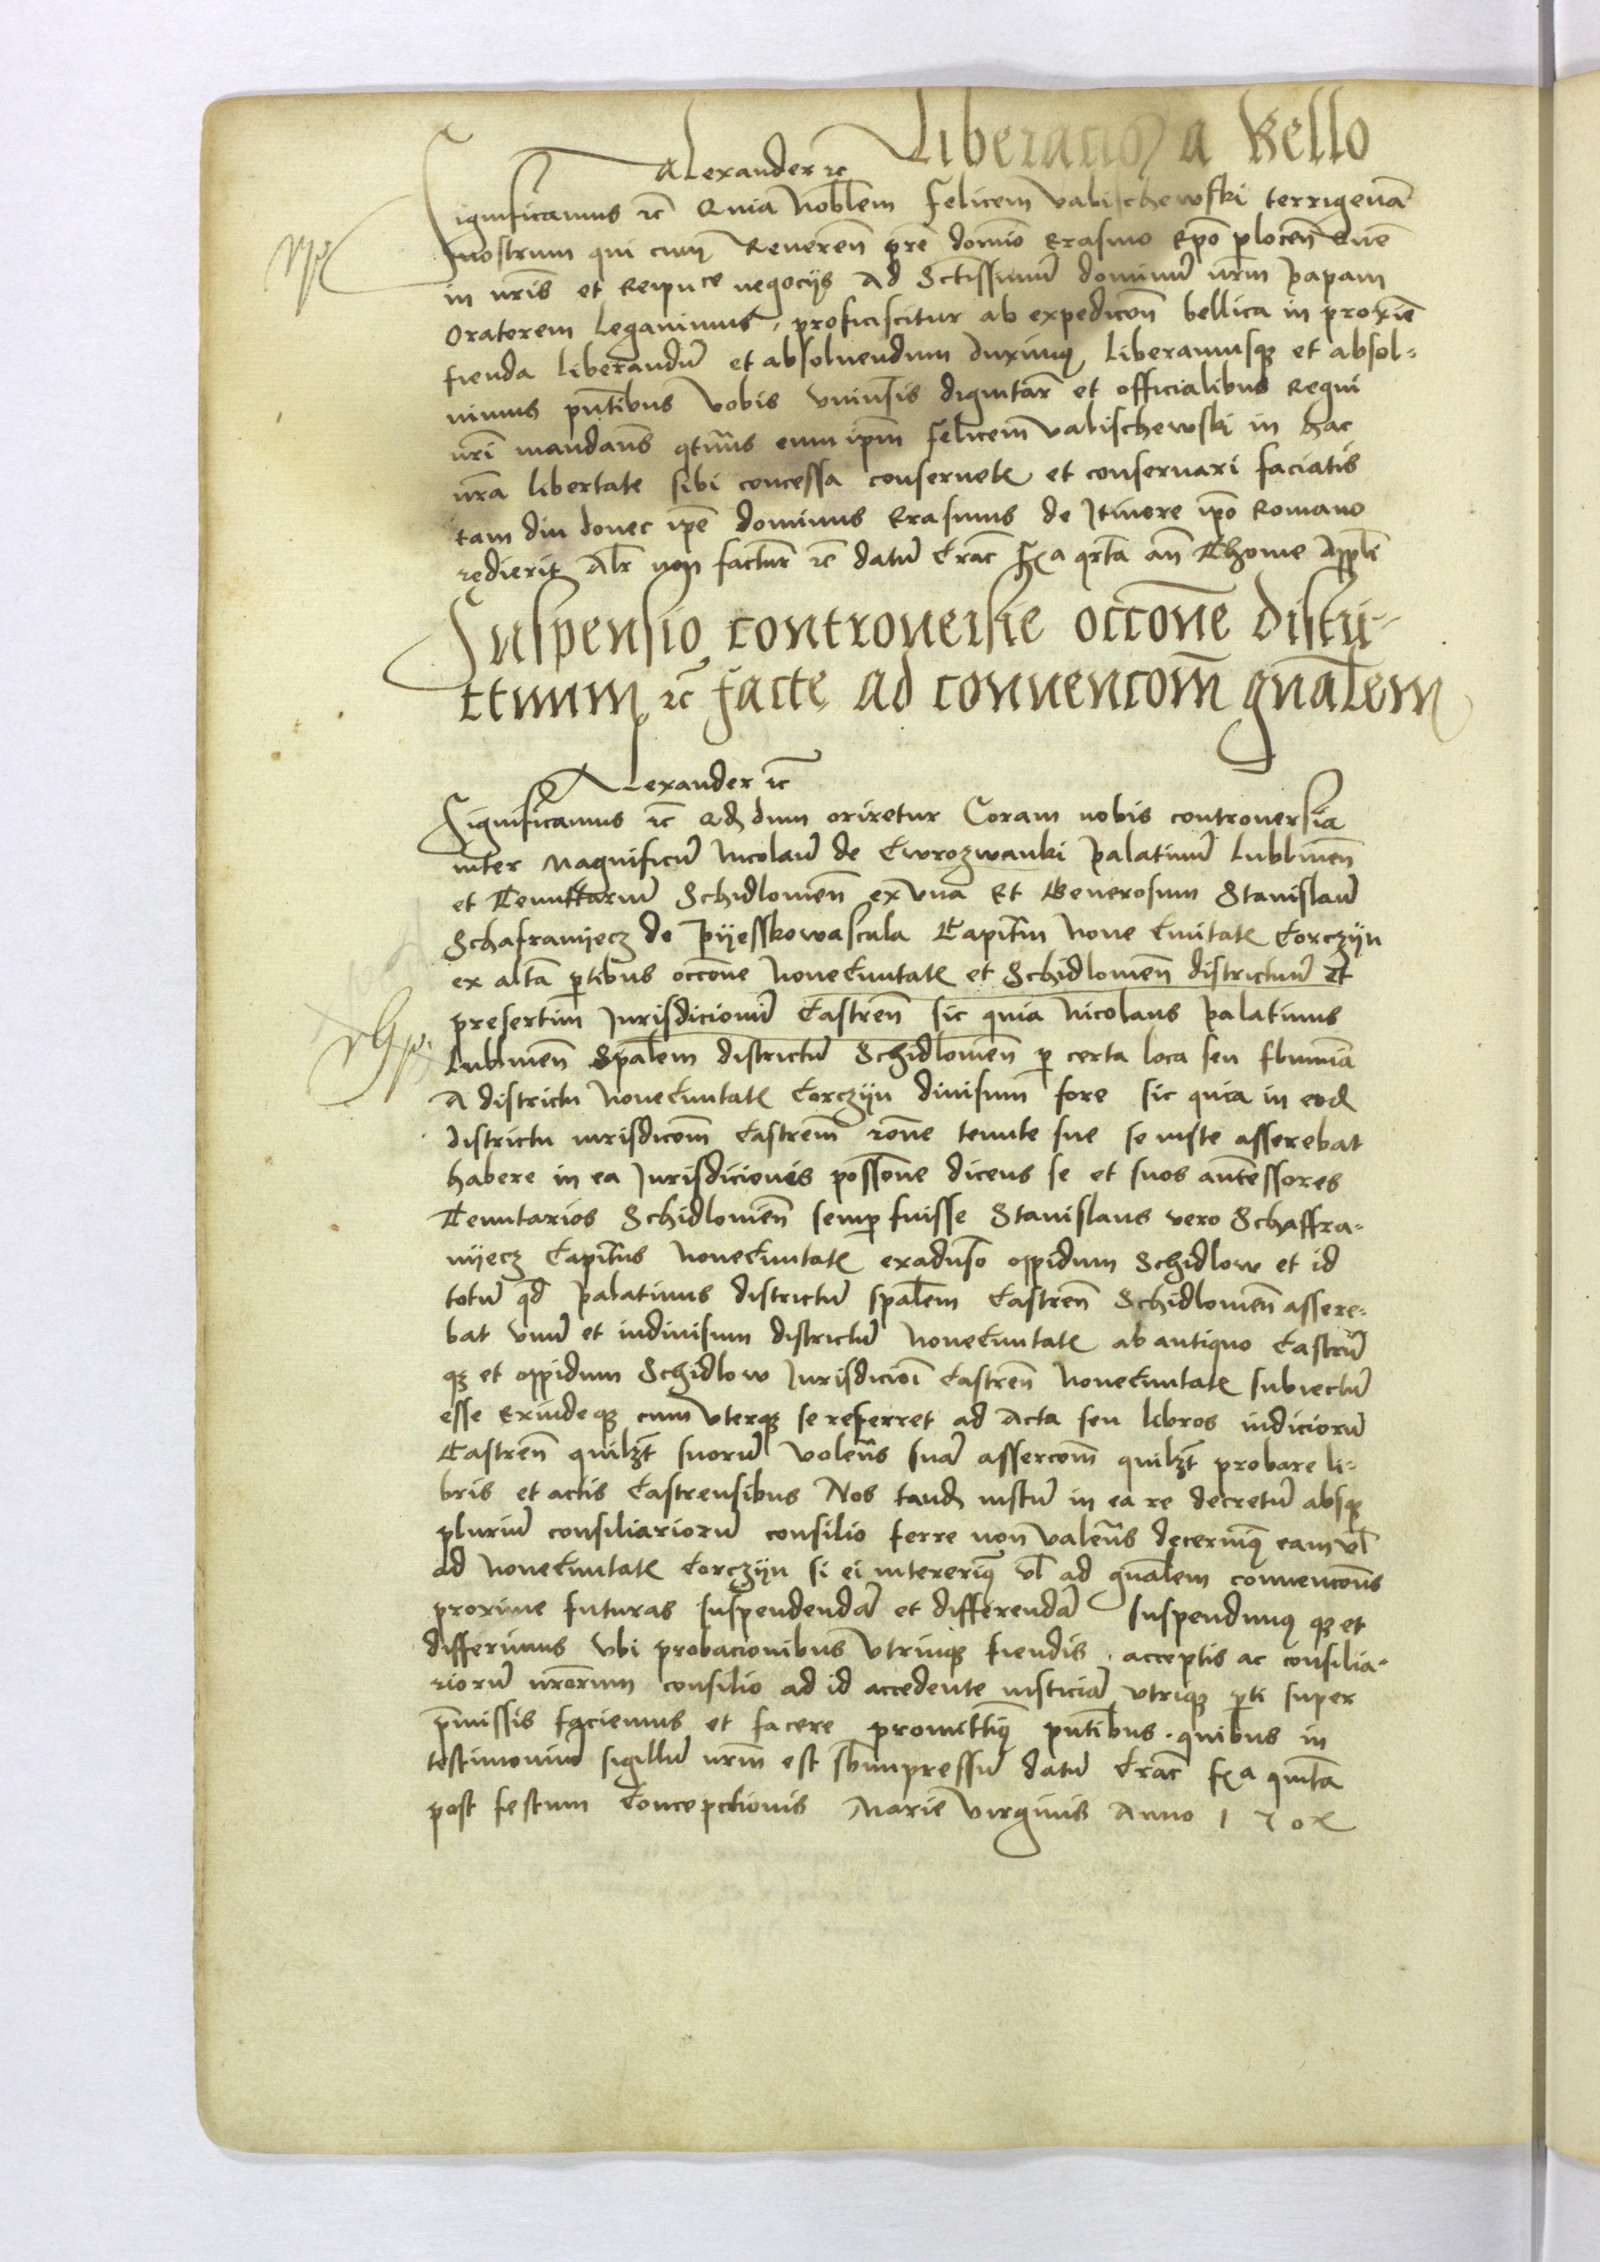 Liberacio a Bello
Alexander etc
Significamus etc Quia Nobilem felicem Valischewski terrigenā
nostrum qui cum Reveren pre domīo Erasmo Epo plocen̄ Quē
in nris et Reipuce negocijs Ad Sctissimū dominū nrm papam
Oratorem legavimus, proficiscitur ab expedicōn bellica in proxīe
fienda liberandū et absolvendum duximus, liberamusq et absol-
vimus pntibus Vobis Vniūsis dignitar et officialibus Regni
nri mandans qtenus eum ipm felicem Valischewski in hac
nra libertate sibi concessa conservetis et conservari faciatis
tam diu donec ipe dominus Erasmus de Itinere ipo Romano
redierit Alr non factur etc datū Crac fia qrta an Thome Appli
Suspensio controversie occōne distri-
ctuum etc facte ad convencōm gnalem
Alexander etc
Significamus etc Qd dum oriretur Coram nobis controversia
inter Magnificū Nicolaū de Cwrozwanki palatinū Lublinen̄
et Tenuttariū Schidlovien̄ ex vna Et Generosum Stanislaū
Schafranyecz de pyesskowascala Capitm Nove Civitatis Corczyn
ex altā ptibus occōne Nove Civitatis et Schidlovien̄ districtuū et
presertim Jurisdicionū Castren̄ sic quia Nicolaus palatinus
Lublinen̄ Spalem districtū Schidlovien̄ p certa loca seu flumina
A districtu Nove Civitatis Corczyn divisum fore sic quia in eod
districtu iurisdicōm Castrem̄ rōne tenute sue se iuste asserebat
habere in ea Jurisdicionis possōne dicens se et suos antēssores
Tenutarios Schidlovien̄ semp fuisse Stanislaus vero Schaffra-
nyecz Capitus Nove Civitatis exadūso oppidum Schidlow et id
totū qd palatinus districtū spalem Castren̄ Schidlovien̄ assere-
bat vnū et indivisum districtū Nove Civitatis ab antiquo Castrū
q et oppidum Schidlow Jurisdicioī Castren̄ Nove Civitatis subiectū
esse Exindeq cum vterq se referret ad Acta seu libros iudiciorū
Castren̄ quilzt suorū volens suā assercōm quilzt probare li-
bris et actis Castrensibus Nos tand iustū in ea re decretū absq
pluriū consiliariorū consilio ferre non valens decernimus eam vl
ad Nove Civitatis Corczyn si ei intererimus vl ad gnalem convencōns
proxime futuras suspendendā et differendā suspendimus q et
differimus Vbi probacionibus Vtrinq fiendis acceptis ac consilia-
riorū nrorum consilio ad id accedente iusticiā vtriq pti super
pmissis faciemus et facere promittimus pntibus quibus in
testimoniū sigillū nrm est sbimpressū datū Crac fia quinta
post festum Concepctionis Marie virginis Anno